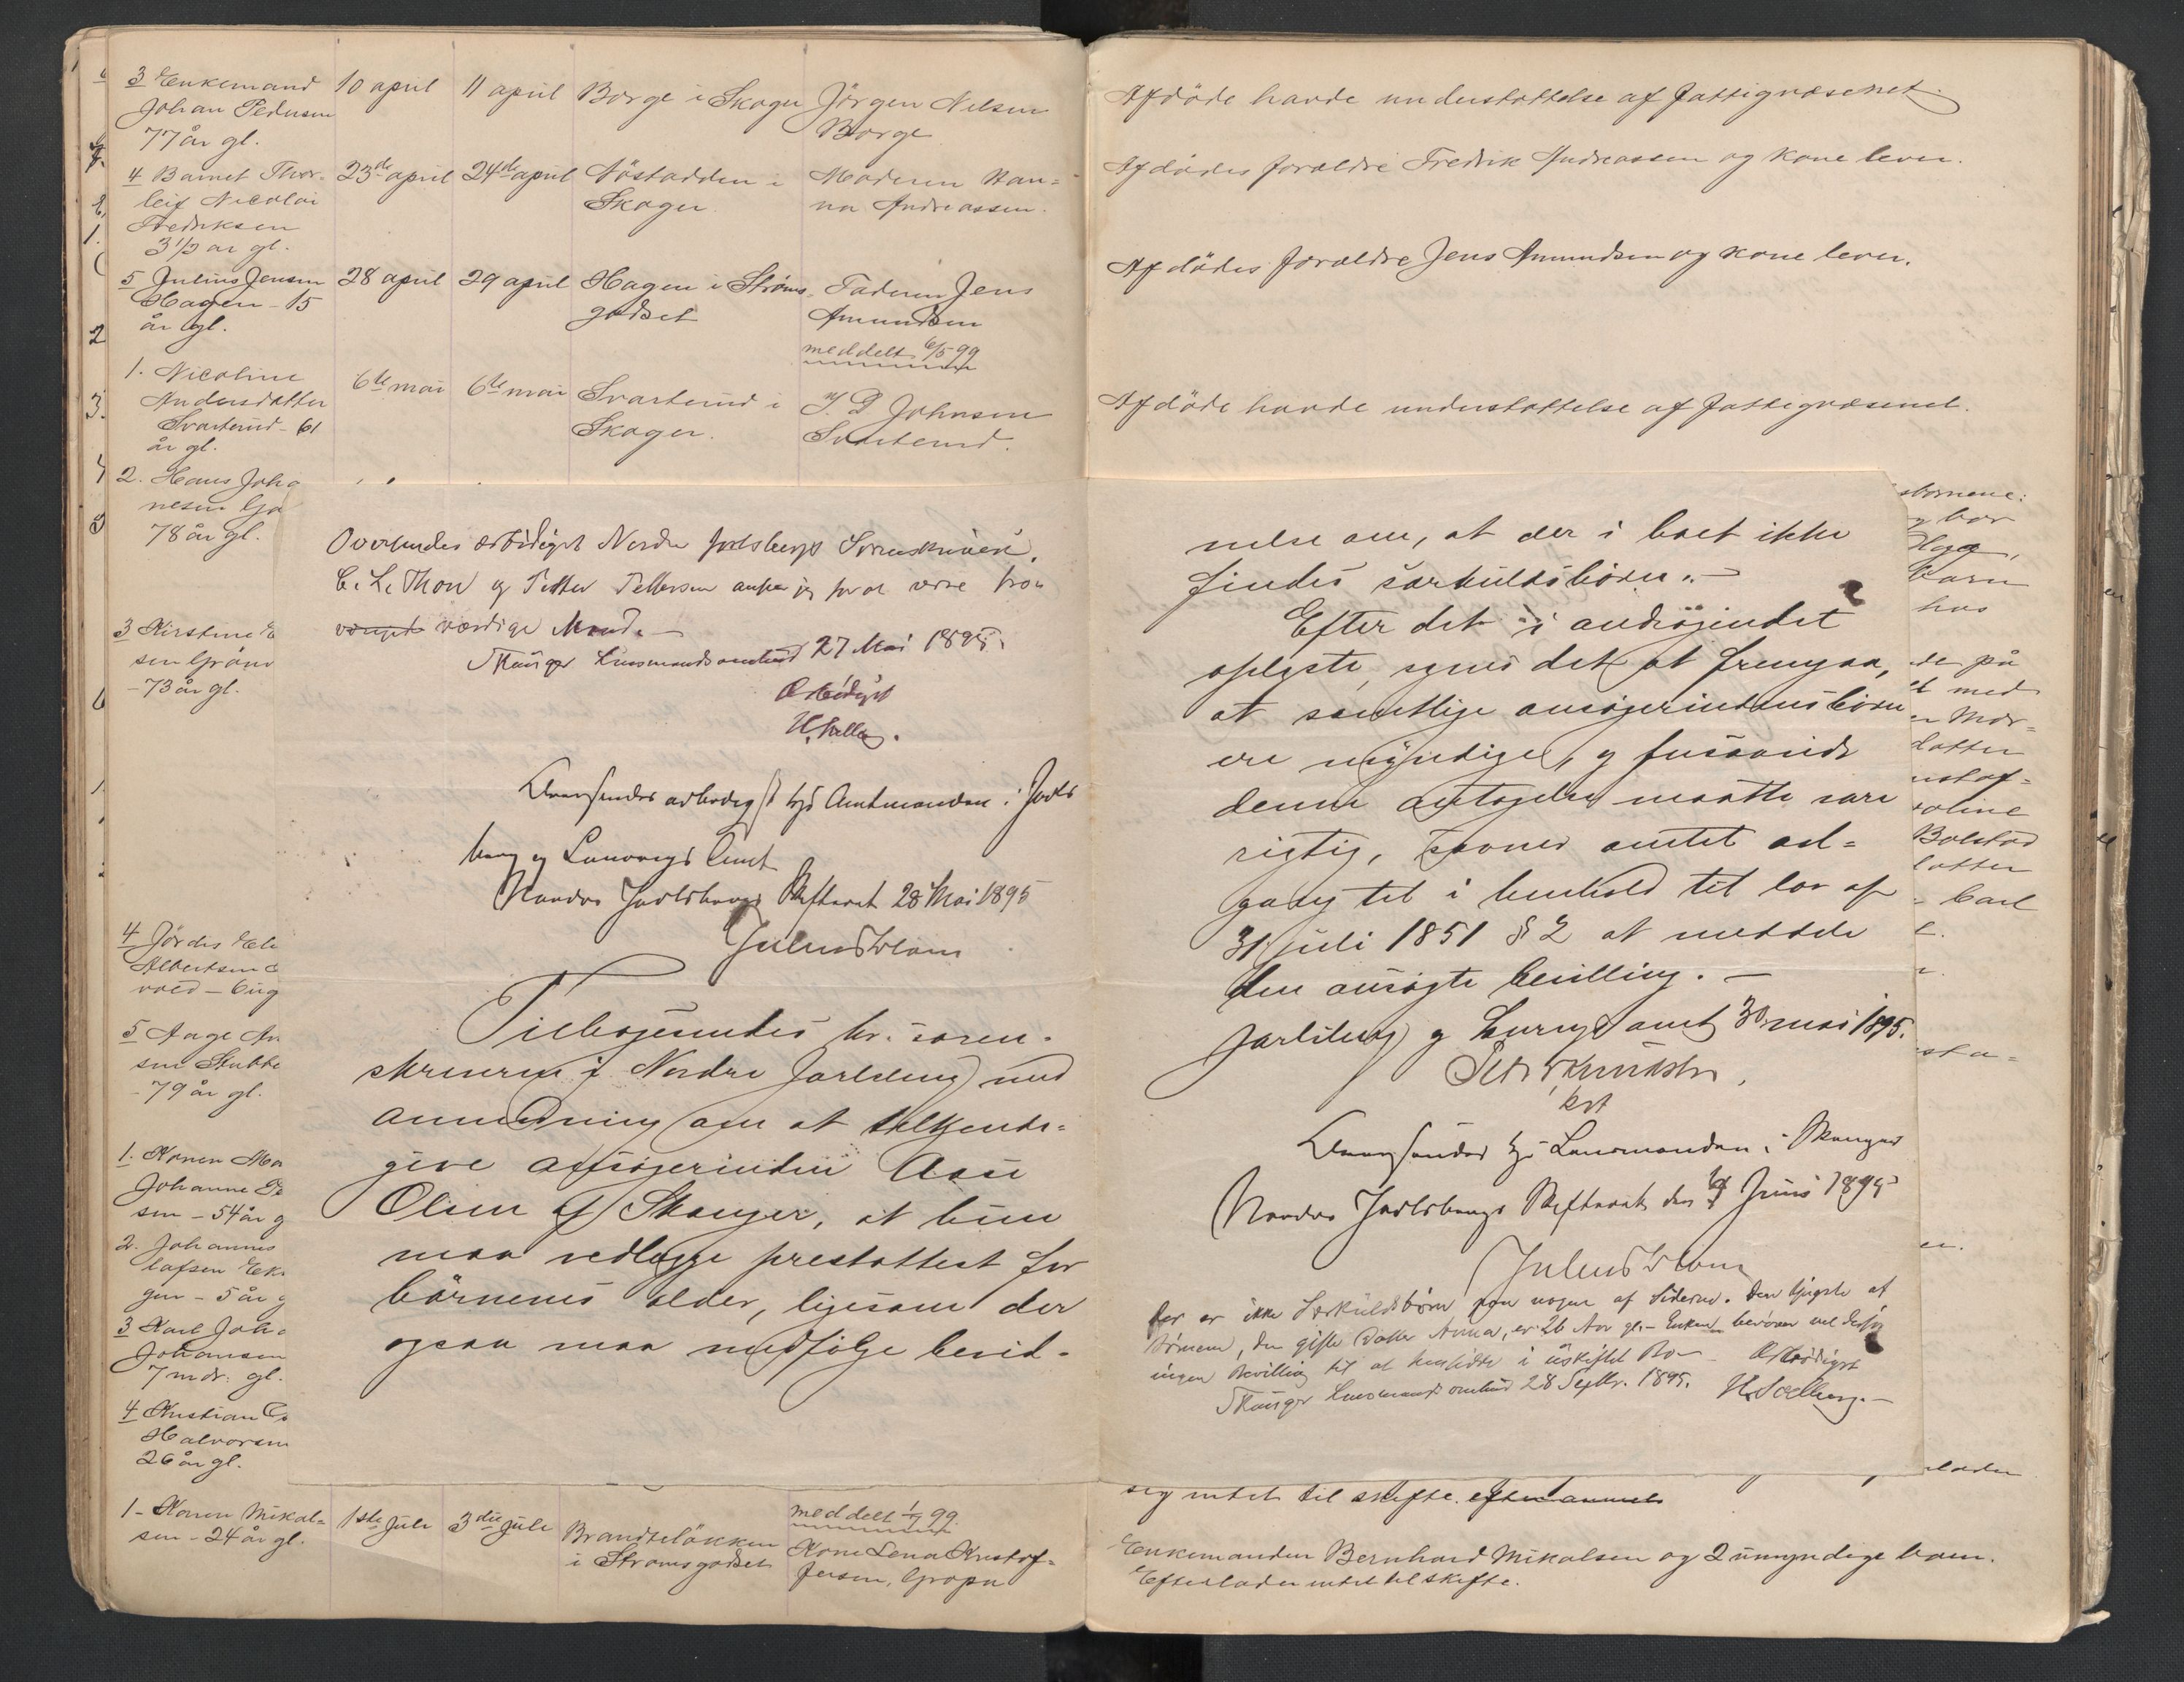 3 Enkemand
Johan Pedersen
77 år gl.
10 april
11 april
Borge i Skoger
Jörgen Nilsen
Borge
Afdöde havde understøttelse af fattigvæsenet.
4 Barnet Thor-
leif Nicolai
Fredriksen
3 1/2 år gl.
23de april
24de april
Nöstodden i
Skoger.
Moderen Han-
na Andreassen.
Afdödes forældre Fredrik Andreassen og kone lever.
5 Julius Jensen
Hagen - 15
år gl.
28 april
29 april
Hagen i Ströms
godset
Faderen Jens
Amundsen
Afdödes forældre Jens Amundsen og kone lever.
meddelt 6/5 99
1. Nicoline
Andersdatter
Svarterud - 61
år gl.
6te mai
6te mai
Svarterud i
Skoger.
J. P. Johnsen
Svarterud.
Afdöde havde understøttelse af fattigvæsenet.
2. Hans Joha
nesen
78 år gl.
3 Kirstine E
sen Grön
- 73 år gl.
4 Jördis
Albertsen
vold - 6 ug
5 Aage An
sen Stubbe
- 79 år gl.
1. Konen
Johanne
sen - 54 år g
2. Johannes
lafsen Ek
gen - 5 år g
3 Karl Joh
Johansen
7 mdr. gl.
4 Kristian
Halvorsen
26 år gl.
Oversendes ærbödigst Nordre Jarlsbergs Sorenskriveri.
C. L. Thon og Petter Pettersen anser jeg for at være tro-
værdige Mænd. -
Skouger Lensmandsombud 27 Mai 1895.
Ærbödigst
H. Solberg.
Oversendes ærbødigst hr. Amtmanden i Jarls
berg og Laurvigs Amt
Nordre Jarlsbergs Skifteret 28 Mai 1895
Julius Blom
Tilbagesendes hr. soren-
skriveren i Nordre Jarlsberg med
anmodning om at tilkjende-
give ansøgerinden Åse
Olsen af Skouger, at hun
maa vedlægge prestattest for
börnenes alder, ligesom der
ogsaa maa medfölge bevid-
nelse om, at der i boet ikke
findes særkuldsbörn. -
Efter det i andragendet
oplyste, synes det at fremgaa,
at samtlige ansøgerindens börn
ere myndige, og forsaavidt
denne antagelse maatte være
rigtig, savner amtet ad-
gang til i henhold til lov af
31 juli 1851 § 2 at meddele
den ansøgte bevilling. -
Jarlsberg og Laurvigs amt 30 mai 1895.
kst
Oversendes hr. Lensmanden i Skouger
Nordre Jarlsbergs Skifteret den Juni 1895
Julius Blom
Der er ikke Særkuldsbörn paa nogen af Siderne. Den yngste af
Börnene, den gifte Datter Anna, er 26 Aar gl. - Enken behöver vel derfor
ingen Bevilling til at hensidde i uskiftet Bo - Ærbödigst
Skouger Lensmandsombud 28 Septbr. 1895. H. Solberg. -
börnene:
Barn
hos
de på
med
datter
ustaf-
oline
Bolstad
datter
Carl
sig intet til skifte.
1 - Konen Mikal-
sen - 24 år gl.
1ste juli
3die juli
Brandteløkken
i Strömsgodset
meddelt 1/7 99.
Kone Lena Kristof-
fersen, Gropa
Enkemanden Bernhard Mikalsen og 2 umyndige barn.
Efterlader intet til skifte.